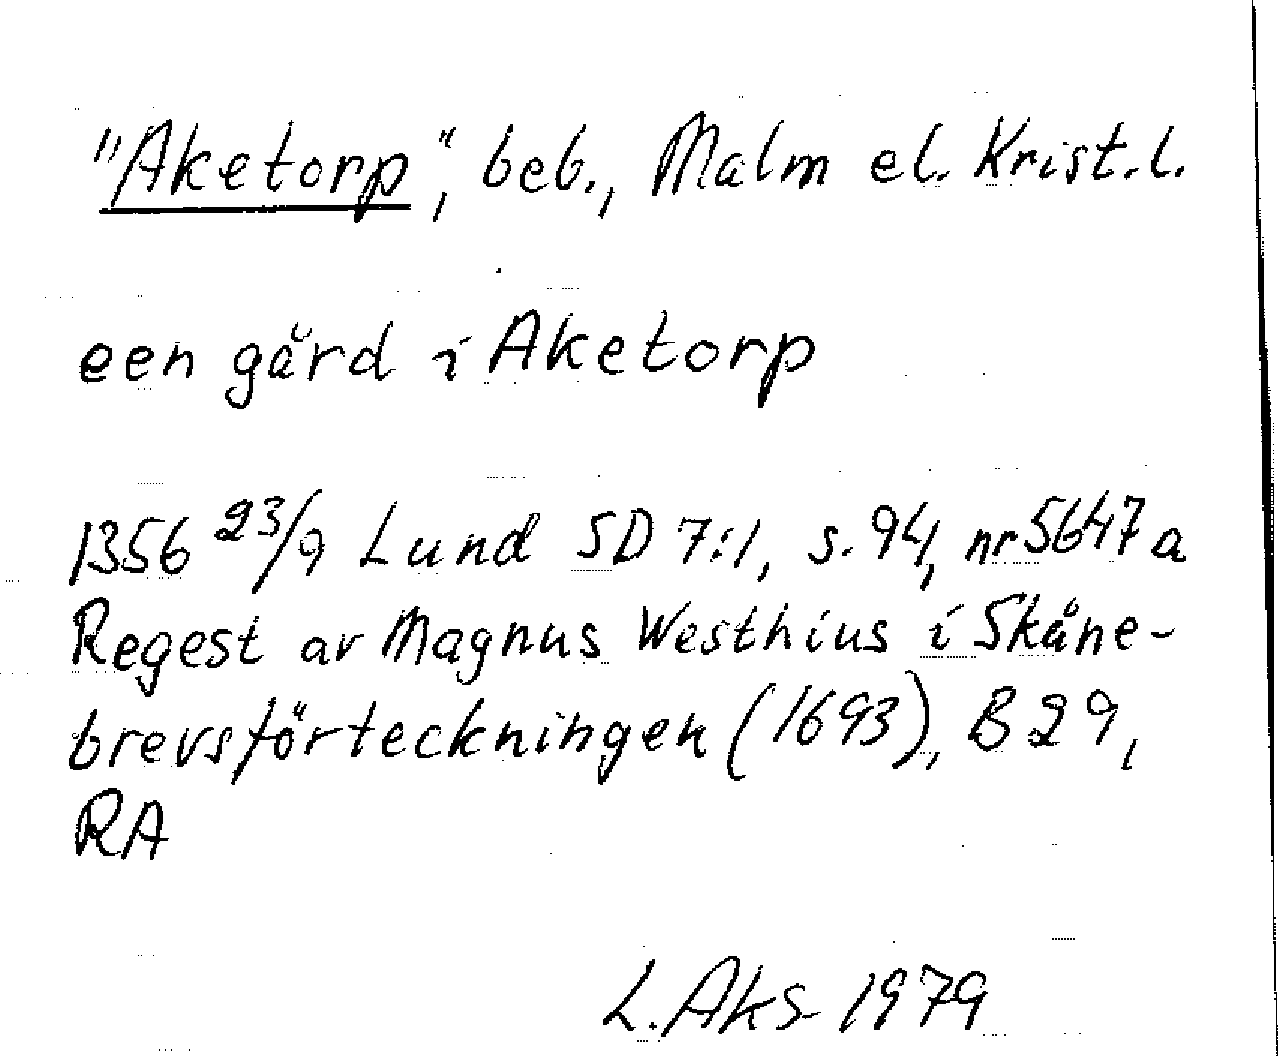 "Aketorp", beb., Malm el. Krist.l.
een gård i Aketorp
1356 23/9 Lund SD 7:1, s. 94, nr 5647 a
Regest av Magnus Westhius i Skåne-
brevsförteckningen (1693), B 29,
RA
L. Aks 1979